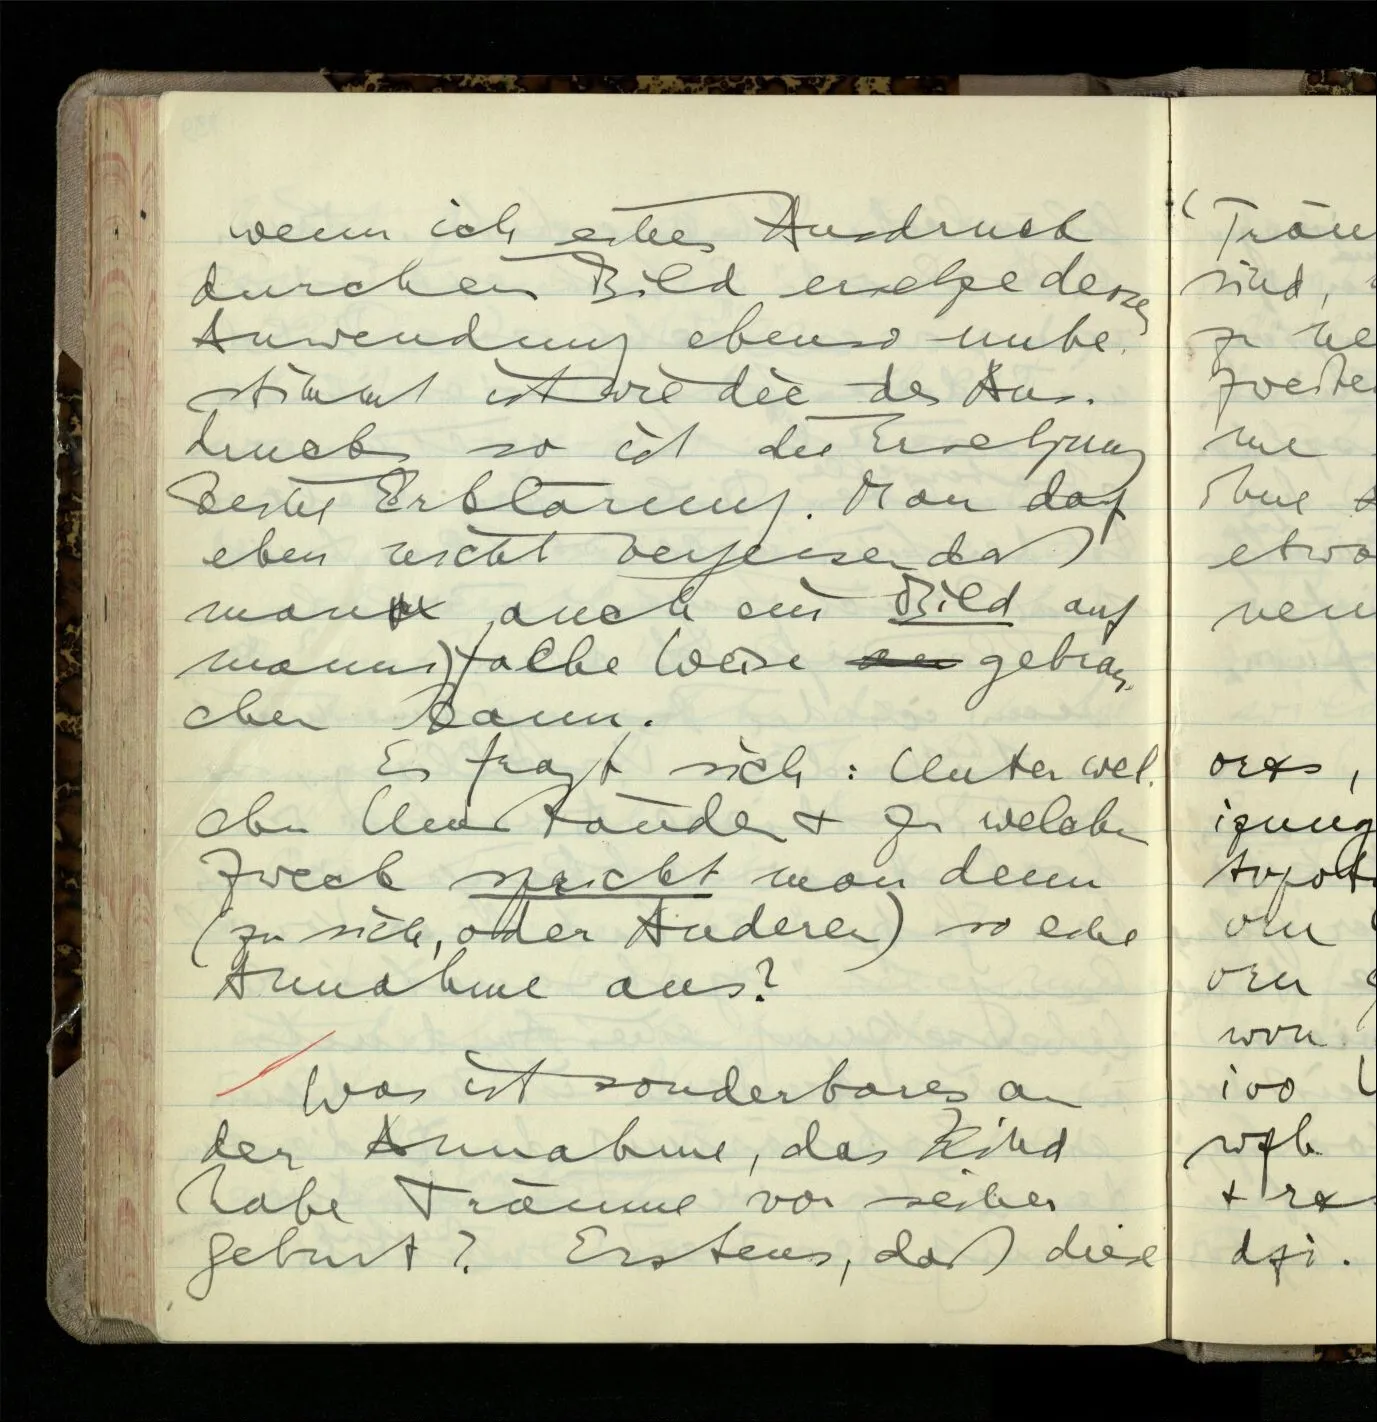 wenn ich einen Ausdruck
durch ein Bild ersetze dessen
Anwendung ebenso unbe-
stimmt ist wie die des Aus-
drucks so ist die Ersetzung
keine Erklärung. Man darf
eben nicht vergessen daß
man auch ein Bild auf
mannigfache Weise gebrau-
chen kann.
Es fragt sich: Unter wel-
chen Umständen & zu welchem
Zweck spricht man denn
(zu sich, oder Anderen) so eine
Annahme aus?
Was ist sonderbares an
der Annahme, das Kind
habe Träume vor seiner
Geburt? Erstens, daß diese
(Träu
sind,
zu
zweite
ohne
etwa
orxs,
izung
ovn
won
ivo
+ rx